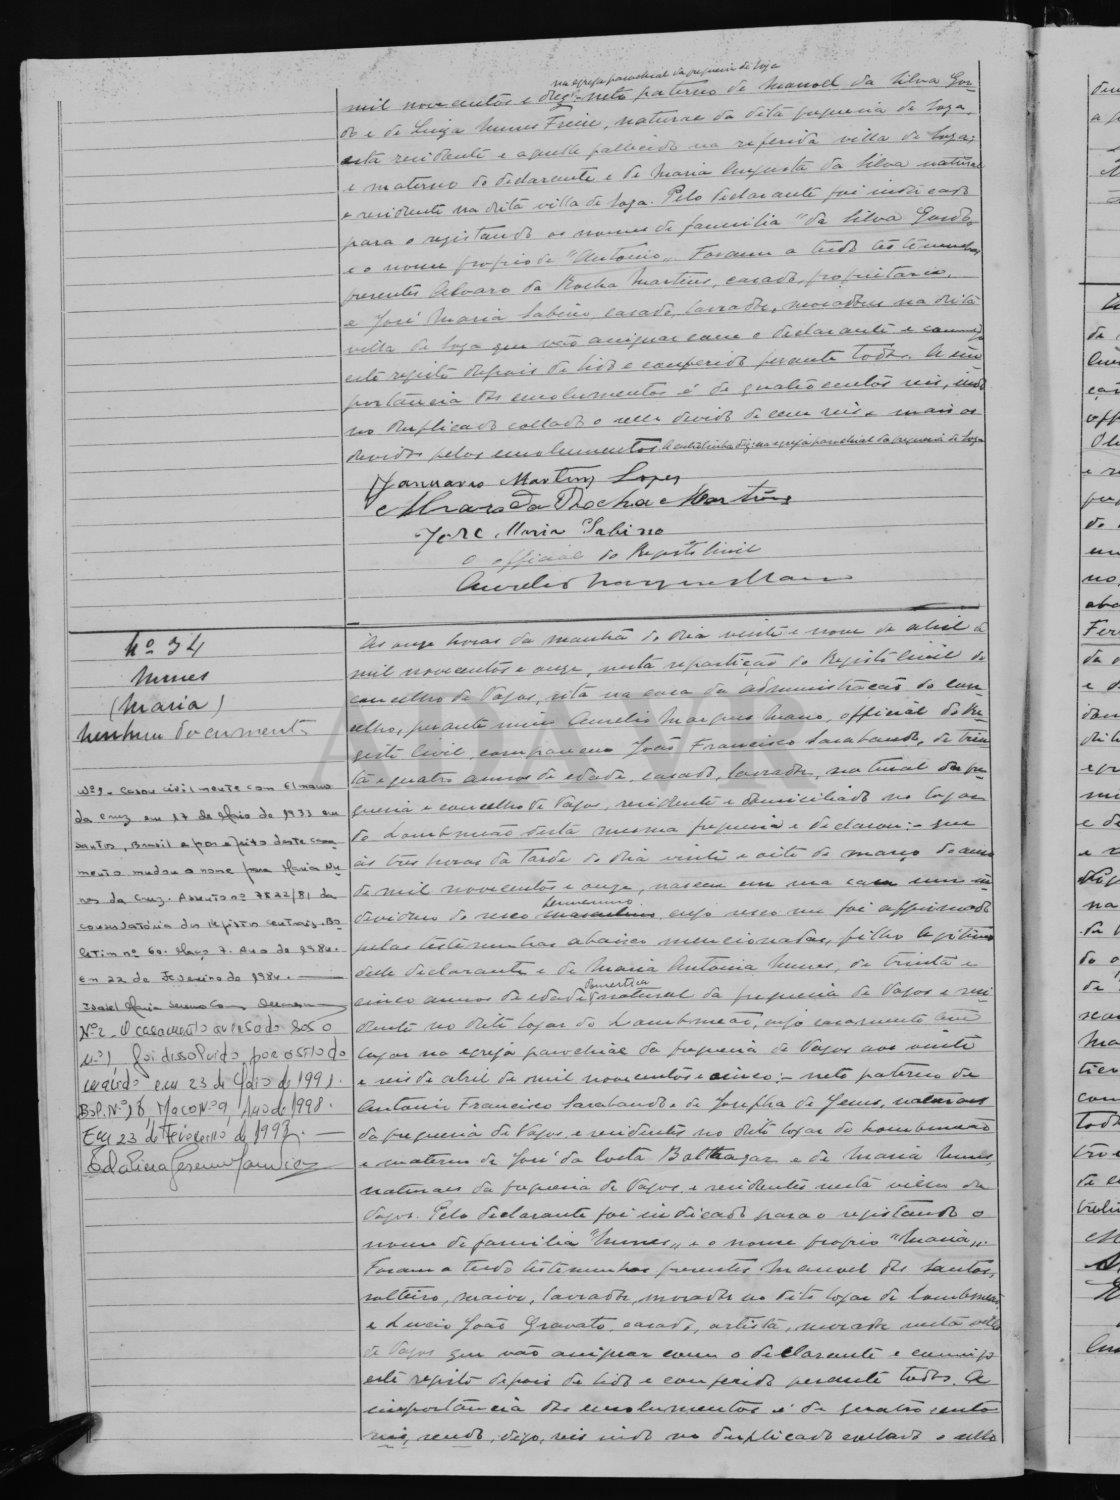 na egreja parochial da freguesia de Soza
mil novecentos e dez;- neto paterno de Manoel da Silva Gon-
do e de Luiza Nunes Freire, naturaes da dita freguesia de Soza,
esta residente e aquelle fallecido na referida villa de Soza;
e materno do declarante e de Maria Augusta da Silva natural
e residente na dita villa de Soza. Pelo declarante foi indicado
para o registando os nomes de familia "da Silva Gondo
e o nome proprio de "Antonio". Foram a tudo testemunhas
presentes Alvaro da Rocha Martins, casado, proprietario,
e José Maria Sabino, casado, lavrador, moradores na dita
villa de Soza que vão assignar com o declarante e commigo
este registo depois de lido e conferido perante todos. A im-
portancia dos emolumentos é de quatrocentos reis, indo
no duplicado collado o sello devido de cem reis e mais os
devidos pelos emolumentos. A entrelinha diz: na egreja parochial da freguesia de Soza
Januario Martins Lopes
Alvaro da Rocha Martins
José Maria Sabino
O official do Registo Civil
Aurelio Marques Mano
Nº 34
Nunes
(Maria)
Nenhum documento
Nº1- Casou civilmente com Elmano
da Cruz em 27 de Maio de 1933 em
Santos, Brasil e por efeito deste casa-
mento mudou o nome para Maria Nu-
nes da Cruz. Assento nº 7822/81 da
Conservatória dos Registos Centrais. Bo-
letim nº 60. Maço 7. Ano de 1984.
Em 22 de Fevereiro de 1984.
Nº2- O casamento averbado sob o
nº1 foi dissolvido por óbito do
marido em 23 de Maio de 1991.
Bol. Nº 16 Maço Nº 9, Ano de 1998.
Em 23 de Fevereiro de 1998.
Ás onze horas da manhã do dia vinte e nove de abril de
mil novecentos e onze, nesta repartição do Registo Civil do
concelho de Vagos, sita na casa da administração do con-
celho, perante mim Aurelio Marques Mano, official do Re-
gisto Civil, compareceu João Francisco Sarabando, de trin-
ta e quatro annos de edade, casado, lavrador, natural da fre-
guesia e concelho de Vagos, residente e domiciliado no logar
do Lombomeão desta mesma freguesia e declarou:- que
ás tres horas da tarde do dia vinte e oito de março do anno
de mil novecentos e onze, nasceu em sua casa um in-
feminino
dividuo do sexo masculino cujo sexo me foi affirmado
pelas testemunhas abaixo mencionadas, filho legitimo
delle declarante e de Maria Antonia Nunes, de trinta e
domestica
cinco annos de edade, natural da freguesia de Vagos e resi-
dente no dito logar do Lombomeão, cujo casamento teve
logar na egreja parochial da freguesia de Vagos aos vinte
e seis de abril de mil novecentos e cinco:- neto paterno de
Antonio Francisco Sarabando e de Josepha de Jesus, naturaes
da freguesia de Vagos e residentes no dito logar do Lombomeão
e materno de José da Costa Balthazar e de Maria Nunes,
naturaes da freguesia de Vagos e residentes nesta villa de
Vagos. Pelo declarante foi indicado para o registando o
nome de familia "Nunes" e o nome proprio "Maria".
Foram a tudo testemunhas presentes Manoel dos Santos,
solteiro, maior, lavrador, morador no dito logar de Lombomeão
e Lucio João Gravato, casado, artista, morador nesta villa
de Vagos que vão assignar com o declarante e commigo
este registo depois de lido e conferido perante todos. A
importancia dos emolumentos é de quatrocentos
reis, sendo, digo, reis indo no duplicado collado o sello
ADAVR